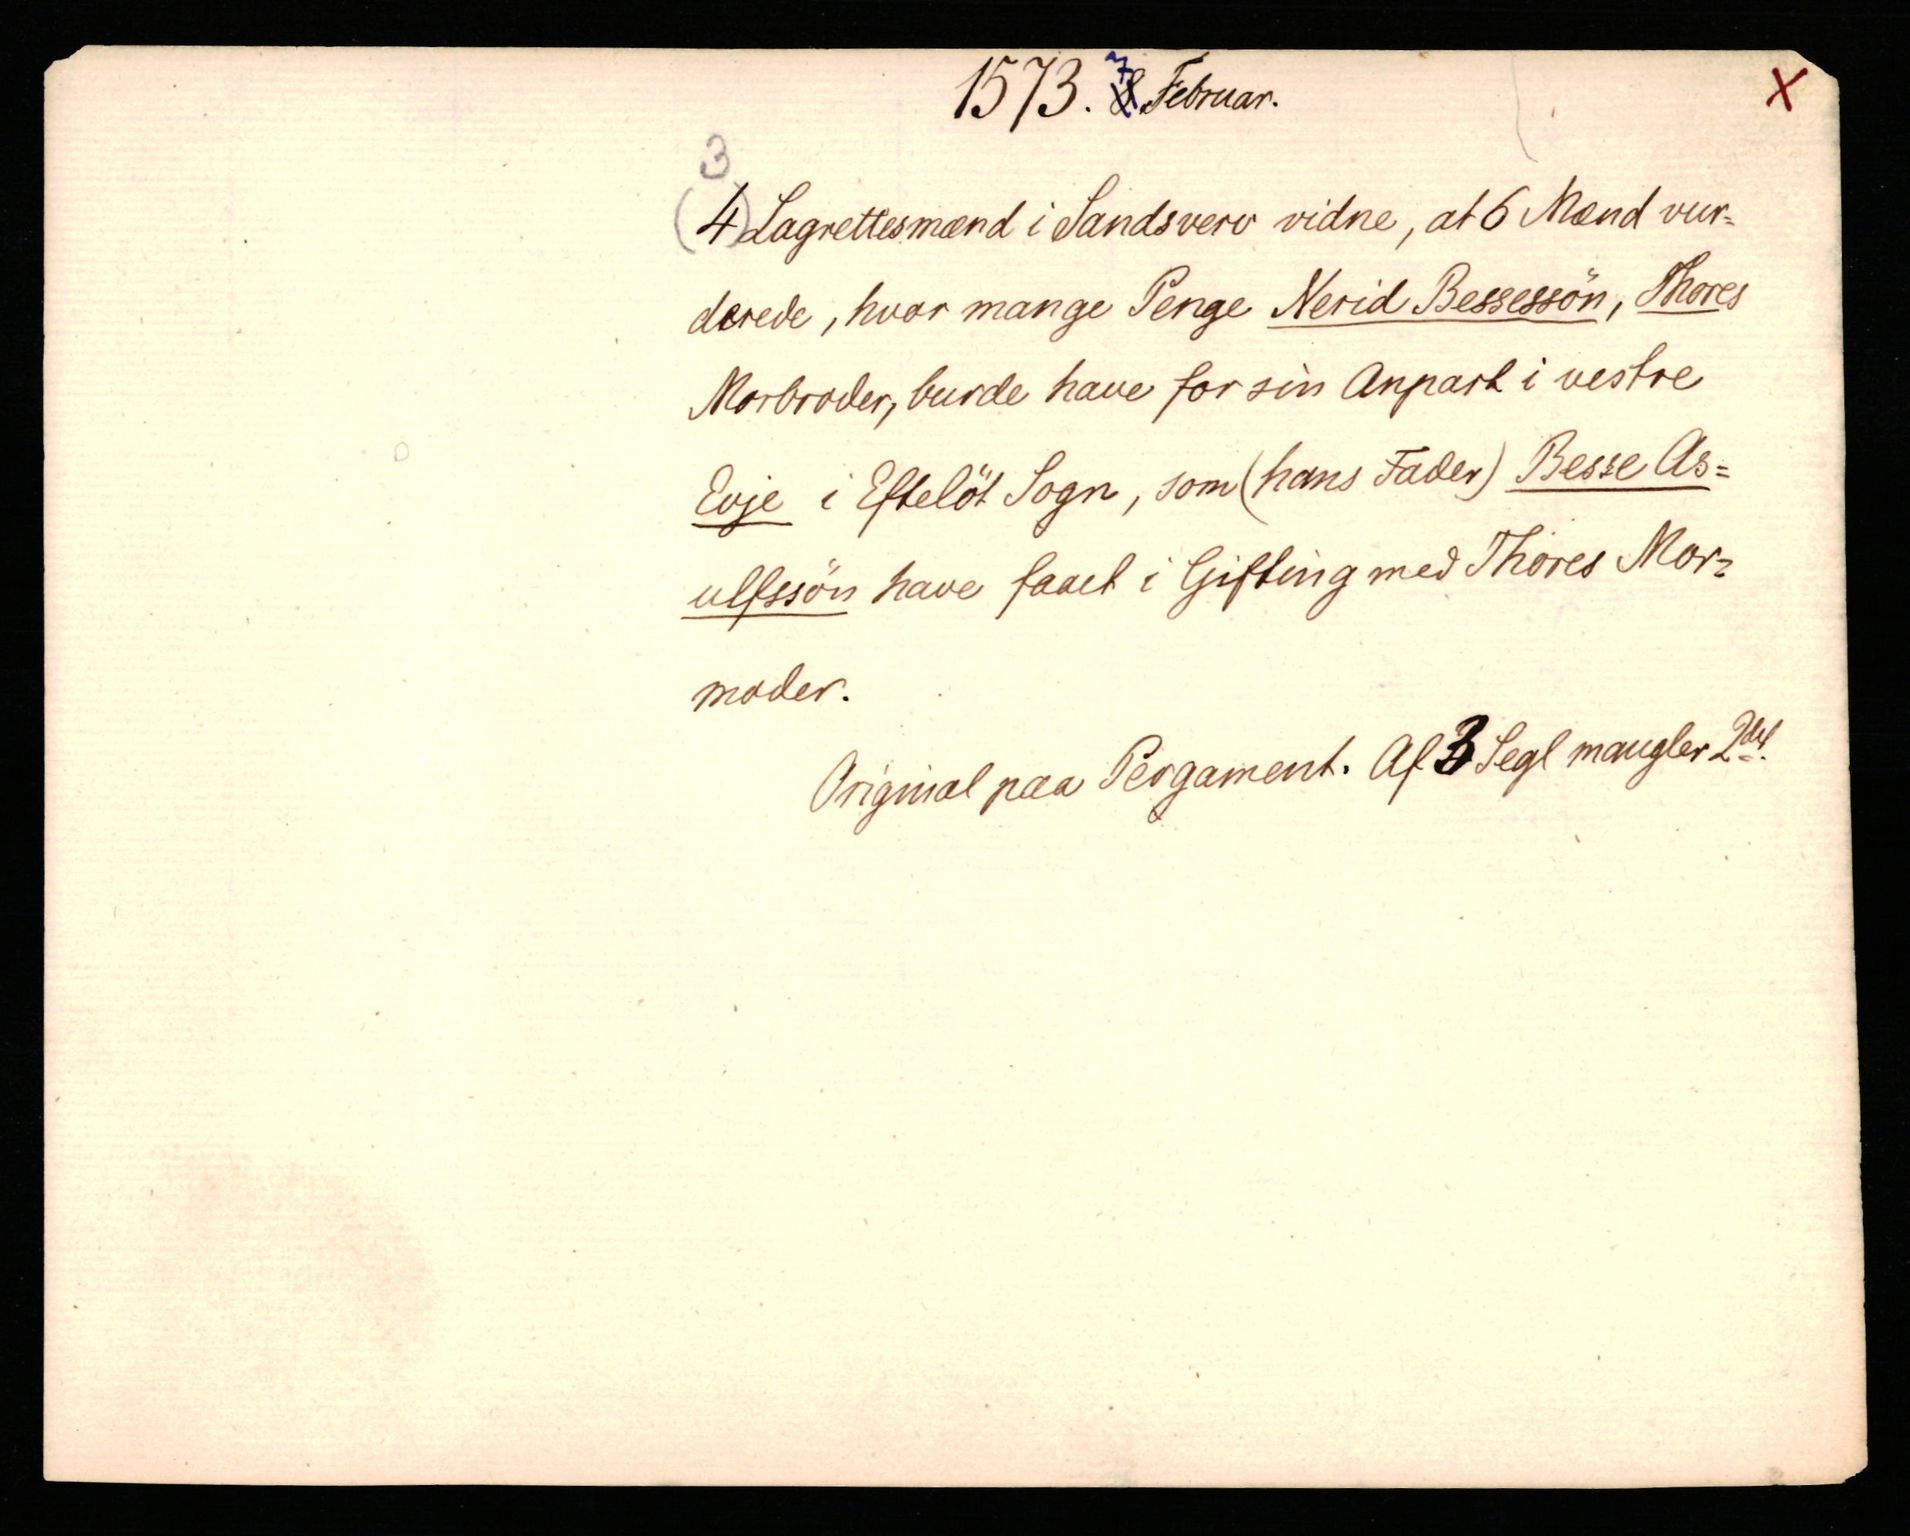 1573. 7 8. Februar.
X
3
(4) Lagrettesmænd i Sandsverv vidne, at 6 Mænd vur=
derede, hvor mange Penge Nerid Bessessön, Thores
Morbroder, burde have for sin Anpart i vestre
Evje i Eftelöt Sogn, som (hans Fader) Besse As=
ulfssön have faaet i Gifting med Thores Mor=
moder.
Original paa Pergament. Af 3 Segl mangler 2det.